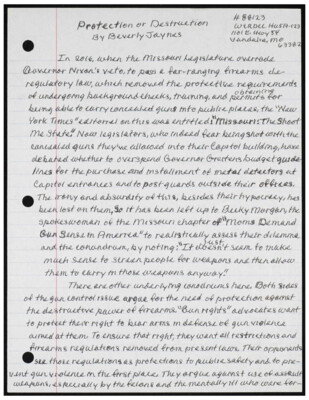 Protection or Destruction
By Beverly Jaynes
#88123
WERDCC
1101 E. Hwy 54
Vandalia, MO
63382
In 2016, when the Missouri Legislature overrode
Governor Nixon's veto, to pass a far-ranging firearms de-
regulatory law, which removed the protective requirements
of undergoing background checks, training, and obtaining permits for
being able to carry concealed guns into public places, the "New
York Times" editorial on this was entitled: "Missouri: The Shoot
Me State." Now legislators, who indeed fear being shot with the
concealed guns they've allowed into their Capitol building, have
debated whether to overspend Governor Greitens budget guide-
lines for the purchase and installment of metal detectors at
Capitol entrances and to post guards outside their offices.
The irony and absurdity of this, besides their hypocrisy, has
been lost on them, so it has been left up to Becky Morgan, the
spokeswoman of the Missouri chapter of "Moms Demand
Gun Sense in America" to realistically assess their dilemma
and the conundrum, by noting: "It just doesn't seem to make
much sense to screen people for weapons and then allow
them to carry in those weapons anyway."
There are other underlying conundrums here. Both sides
of the gun control issue argue for the need of protection against
the destructive power of firearms. "Gun rights" advocates want
to protect their right to bear arms in defense of gun violence
aimed at them. To ensure that right, they want all restrictions and
firearms regulations removed from present laws. Their opponents
see those regulations as protections to public safety and to pre-
vent gun violence in the first place. They argue against use of assault
weapons, especially by the felons and the mentally ill who were for-